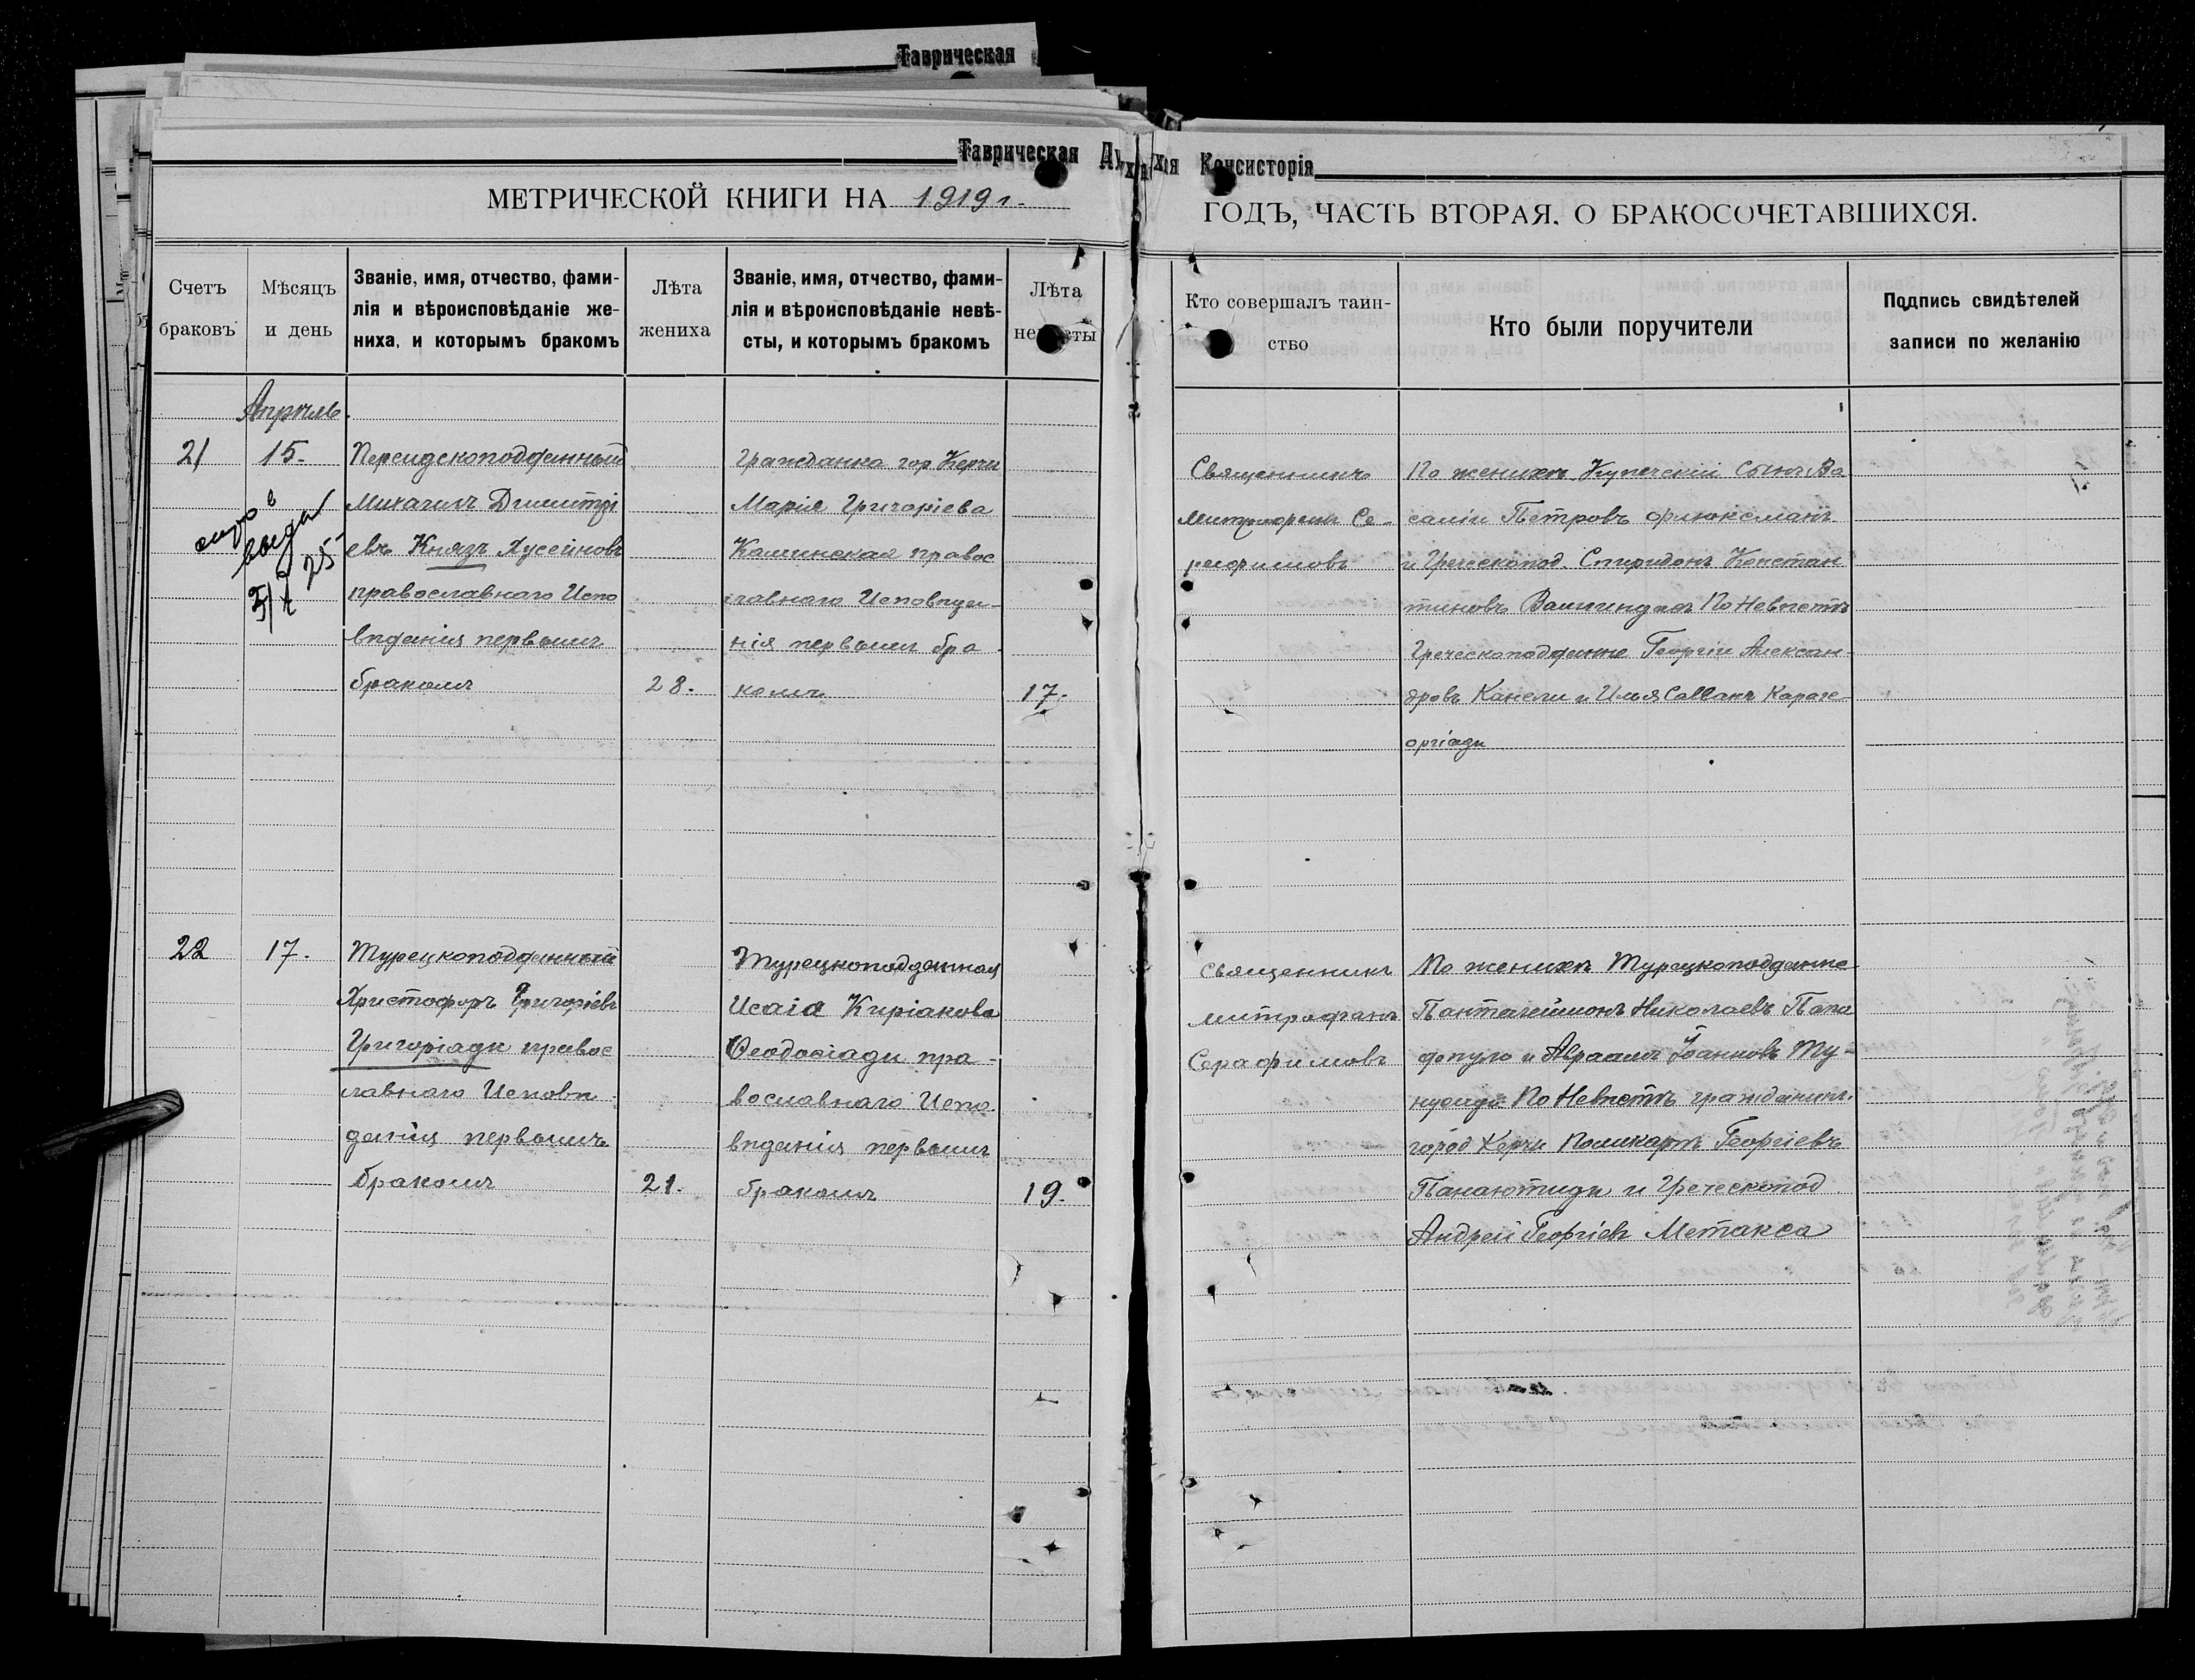 Таврическая
Таврическая Духовная Консисторія
МЕТРИЧЕСКОЙ КНИГИ НА 1919 г.
ГОДЪ, ЧАСТЬ ВТОРАЯ. О БРАКОСОЧЕТАВШИХСЯ.
Счетъ браковъ
Мѣсяцъ и день
Званіе, имя, отчество, фами-
лія и вѣроисповѣданіе же-
ниха, и которымъ бракомъ
Лѣта жениха
Званіе, имя, отчество, фами-
лія и вѣроисповѣданіе невѣ-
сты, и которымъ бракомъ
Лѣта невѣсты
Кто совершалъ таин-
ство
Кто были поручители
Подпись свидѣтелей
записи по желанію
Апрѣль.
21
15.
выда
25
Персидскоподданный
Михаилъ Димитрі
евъ Князъ Хусейновъ
православнаго Испо
вѣданія первымъ
бракомъ
28.
Гражданка гор Керчи
Марія Григоріева
Каминская правос
лавнаго Исповѣда-
нія первымъ бра
комъ
17.
Священникъ
Митрофанъ Се-
рафимовъ
По женихѣ Купеческій Сынъ Ва
салій Петровъ Флюксманъ
и Греческопод. Спиридонъ Констан
тиновъ По Невѣстѣ
Греческоподданне Георгій Алексан
дровъ Канели и Илья Саввакъ Караге-
оргіади
22
17.
Турецкоподданный
Христофоръ Григоріевъ
Григоріади правос
лавнаго Исповѣ
данія первымъ
бракомъ
21.
Турецкоподданная
Исаіа Киріакова
Феодосіади пра-
вославнаго Испо
вѣданія первымъ
бракомъ
19.
Священникъ
Митрофанъ
Серафимовъ
По женихѣ Турецкоподданне
Пантелеймонъ Николаевъ Папа
допуло и Авраамъ Іоанновъ Ту-
По Невѣстѣ гражданинъ
город Керчи Поликарпъ Георгіевъ
Панаютиди и Греческопод
Андрей Георгіевъ Метакса